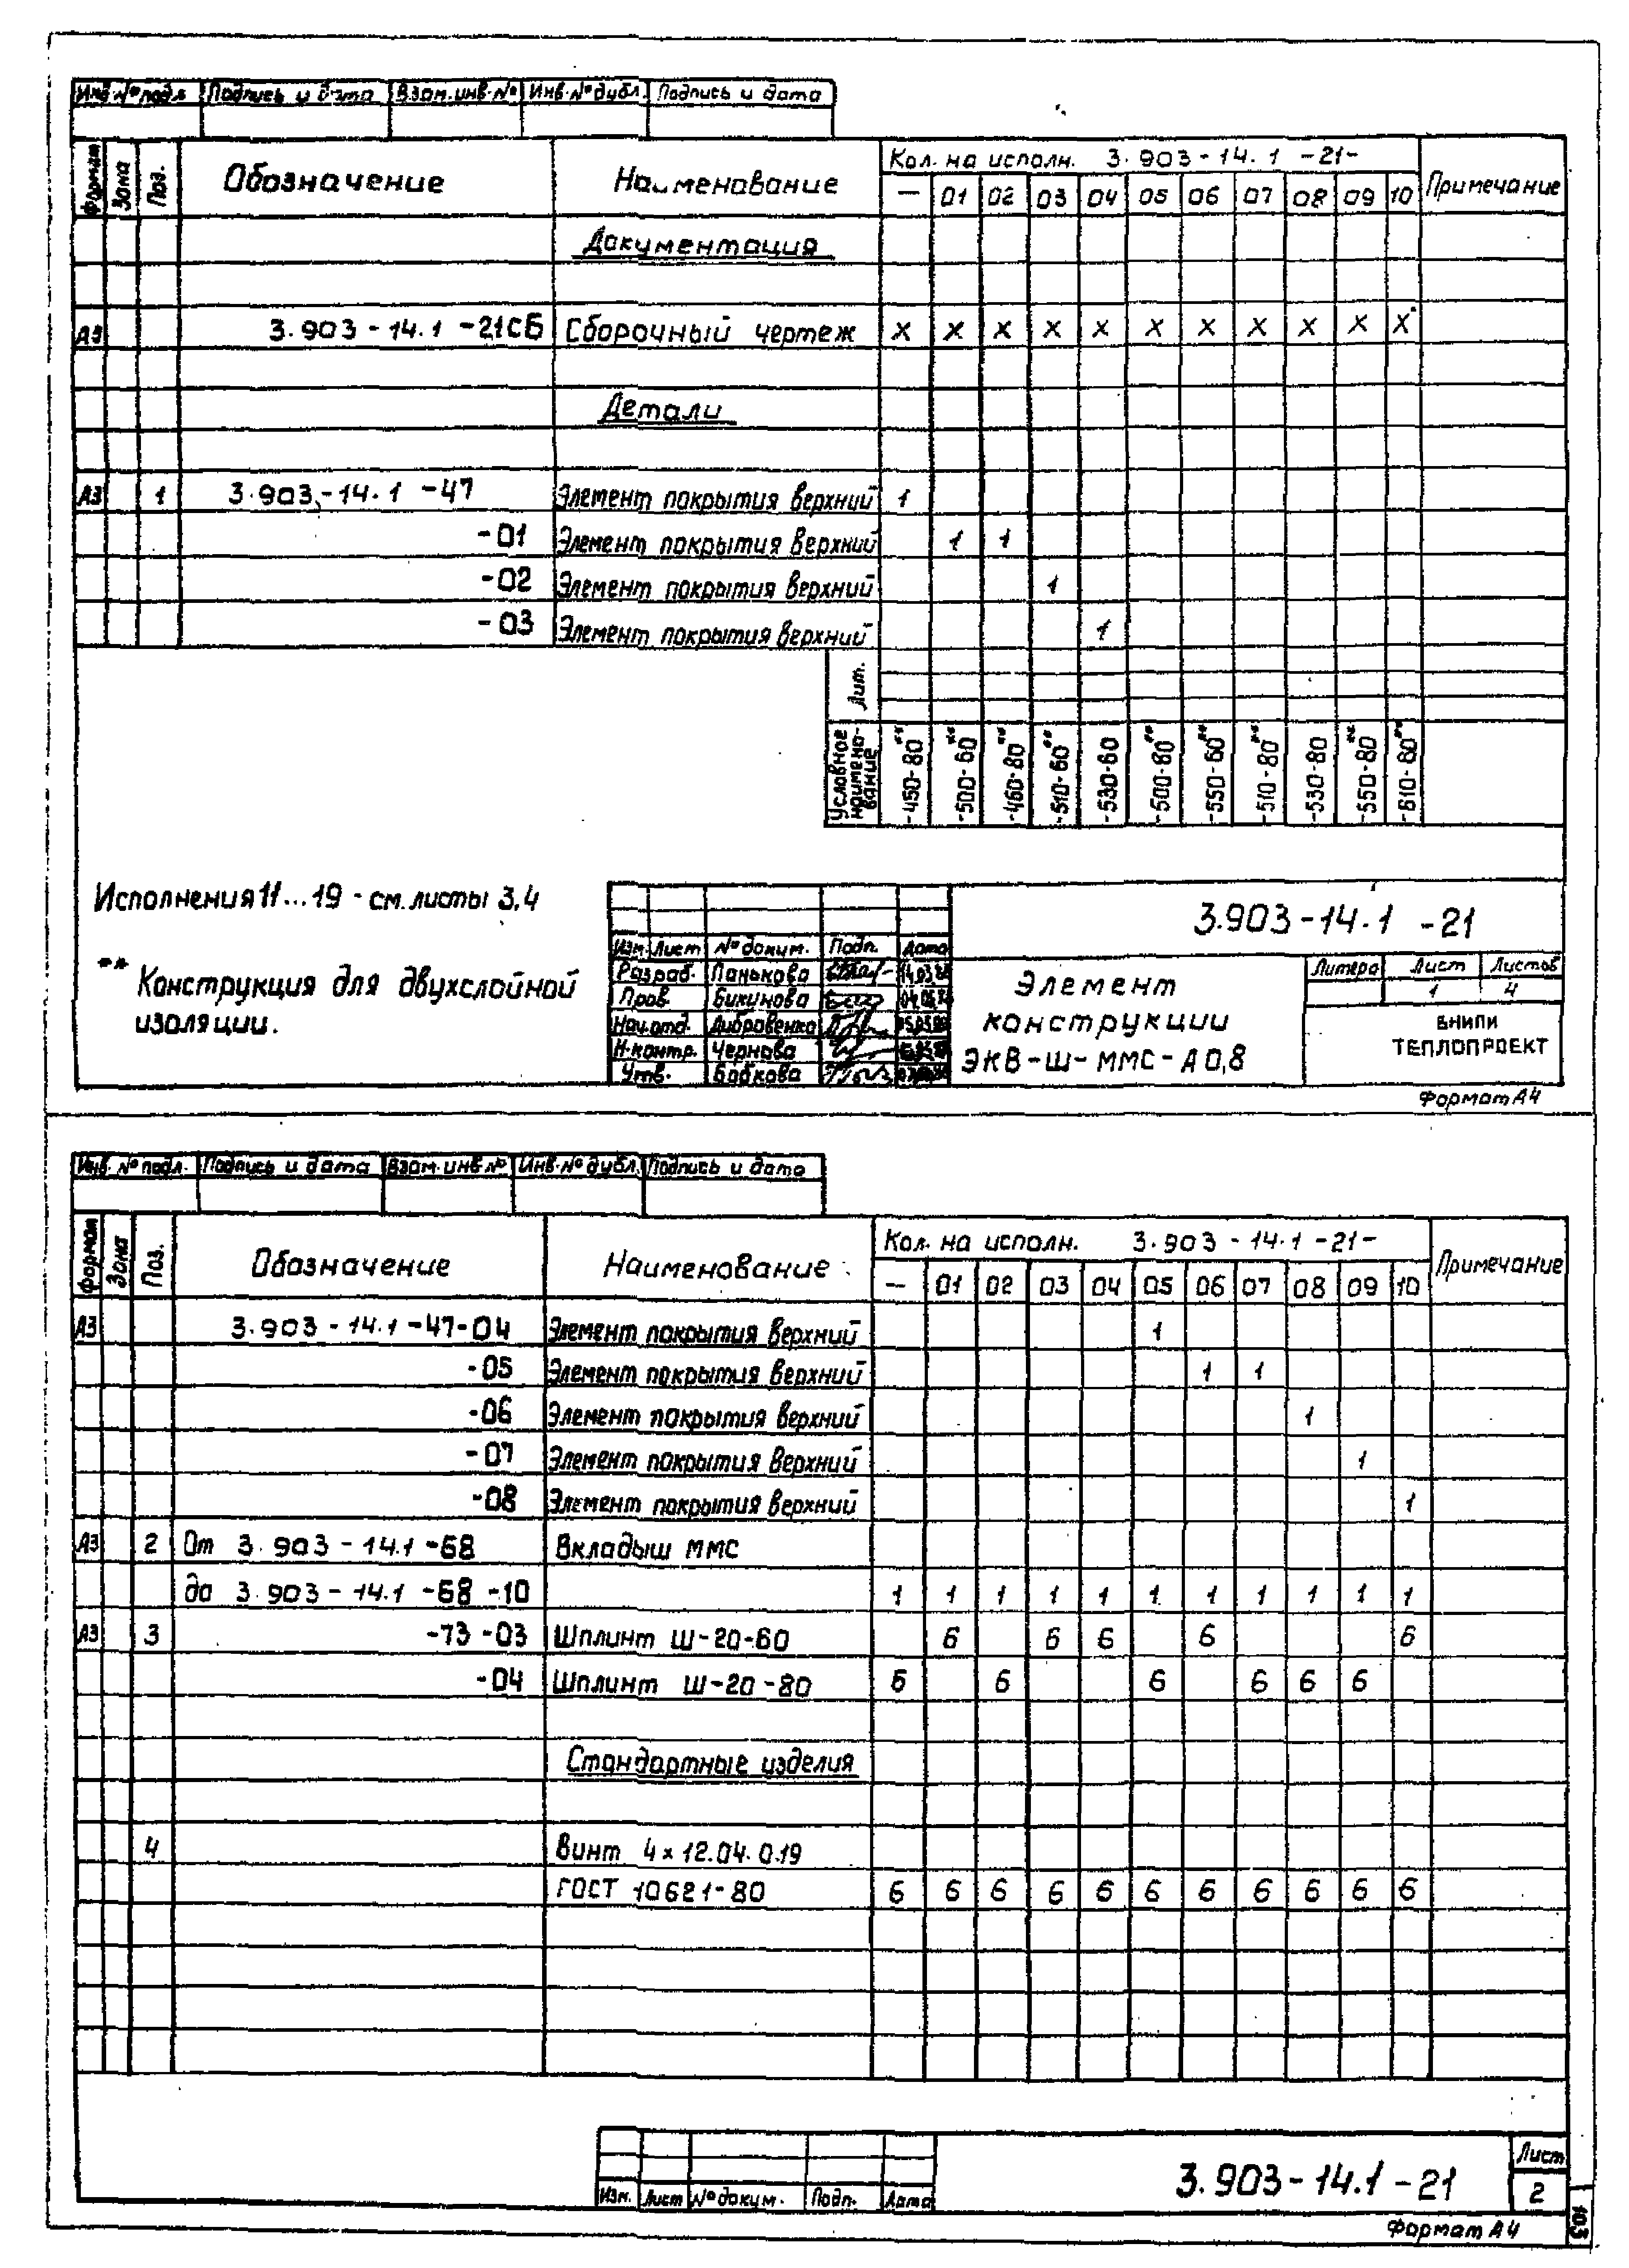 Инв.№ подл. Подпись и дата Взам.инв.№ Инв.№ дубл. Подпись и дата
Формат Зона Поз. Обозначение Наименование Кол. на исполн. 3.903-14.1 -21- Примечание
— 01 02 03 04 05 06 07 08 09 10
Документация
А3 3.903-14.1-21СБ Сборочный чертеж X X X X X X X X X X X
Детали
А3 1 3.903-14.1-47 Элемент покрытия верхний 1
-01 Элемент покрытия верхний 1 1
-02 Элемент покрытия верхний 1
-03 Элемент покрытия верхний 1
Лит.
Условное наименование -450-80** -500-60** -460-80** -510-60** -530-60 -500-80** -550-60** -510-80** -530-80 -550-80** -610-80**
Исполнения 11...19 - см. листы 3,4
** Конструкция для двухслойной
изоляции.
3.903-14.1 -21
Изм. Лист № докум. Подп. Дата
Разраб. Панькова
Пров. Бикунова
Нач.отд. Дибровенко
Н.контр. Чернова
Утв. Бобкова
Элемент
конструкции
ЭКВ-Ш-ММС-А0,8
Литера Лист Листов
1 4
ВНИПИ
ТЕПЛОПРОЕКТ
Формат А4
Инв.№ подл. Подпись и дата Взам.инв.№ Инв.№ дубл. Подпись и дата
Формат Зона Поз. Обозначение Наименование Кол. на исполн. 3.903-14.1-21- Примечание
— 01 02 03 04 05 06 07 08 09 10
А3 3.903-14.1-47-04 Элемент покрытия верхний 1
-05 Элемент покрытия верхний 1 1
-06 Элемент покрытия верхний 1
-07 Элемент покрытия верхний 1
-08 Элемент покрытия верхний 1
А3 2 От 3.903-14.1-68 Вкладыш ММС
до 3.903-14.1-68-10 1 1 1 1 1 1 1 1 1 1 1
А3 3 -73-03 Шплинт Ш-20-60 6 6 6 6 6
-04 Шплинт Ш-20-80 6 6 6 6 6 6
Стандартные изделия
4 Винт 4×12.04.019
ГОСТ 10621-80 6 6 6 6 6 6 6 6 6 6 6
3.903-14.1-21
Лист
2
Изм. Лист № докум. Подп. Дата
Формат А4
103